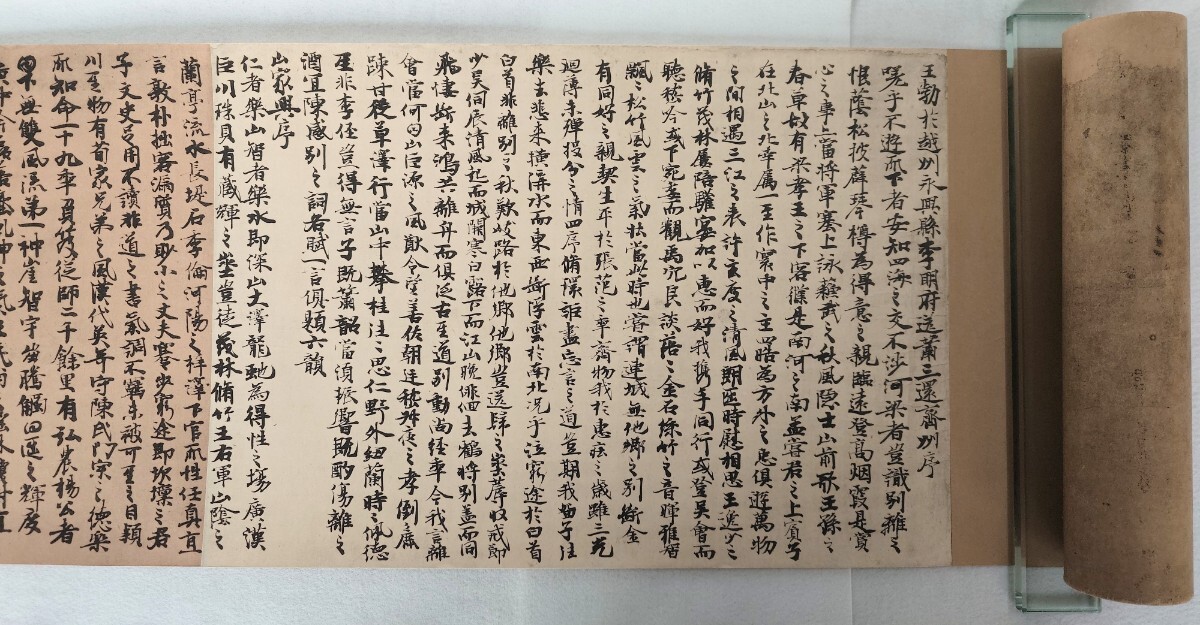 王勃於越州永興縣李明府送蕭三還齊州序
嗟乎不遊天下者安知四海之交不涉河梁者豈識別離之
恨蔭松披薜琴樽為得意之親臨遠登高烟霞是賞
心之事亦當將軍塞上詠蘇武之秋風隱士山前歌王孫之
春草故有梁孝王之下客僕是南河之南孟嘗君之上賓子
在北山之北幸屬一王作寰中之主豁為方外之臣俱遊萬物
之間相遇三江之表許玄度之清風朗匝時慰相思王逸少之
脩竹茂林屢陪驩宴加以惠而好我携手同行或登吳會而
聽越吟或下宛委而觀禹穴良談落之金石絲竹之音暉雅智
飄之松竹風雲之氣狀當此時也嘗謂連城無他鄉之別斷金
有同好之親契生平於張范之年齊物我於惠莊之歲雖三光
迴薄未殫投分之情四序脩環詎盡忘言之道豈期我留子往
樂去悲來橫溝水而東西斷浮雲於南北況乎泣窮途於白首
白首非離別之秋歎岐路於他鄉他鄉豈送歸之處蓐收戒節
少昊伺辰清風起而城闕寒白露下而江山晚徘徊去鶴將別蓋而同
飛悽斷來鴻共離舟而俱泛古至道別動尚經年今我言離
會當何日巨源之風猷令望善佐朝廷嵇叔夜之孝倒麁
疎甘從草澤行當山中攀桂往之思仁野外紉蘭時之佩德
至非李任豈得無言子既簫韶當須振響既酌傷離之
酒宜陳感別之詞各賦一言俱題六韻
山家興序
仁者樂山智者樂水即深山大澤龍虵為得性之場廣漢
巨川珠貝有藏輝之地豈徒茂林脩竹王右軍山陰之
蘭亭流水長堤石季倫河陽之梓澤下官天性任真直
言敦朴拙容漏質乃眇小之丈夫蹇步窮途即坎壈之君
子文史足用不讀非道之書氣調不羈未被可至之目穎
川人物有荀家兄弟之風漢代英奇守陳氏門宗之德樂
天知命一十九年負笈從師二千餘里有弘農楊公者
日下世雙風流第一神崖智宇崩騰觸四區之輝度